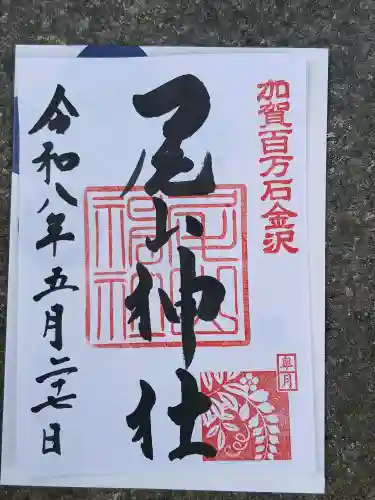 加賀百万石金沢
尾山神社
尾山神社
皐月
令和八年五月二十七日